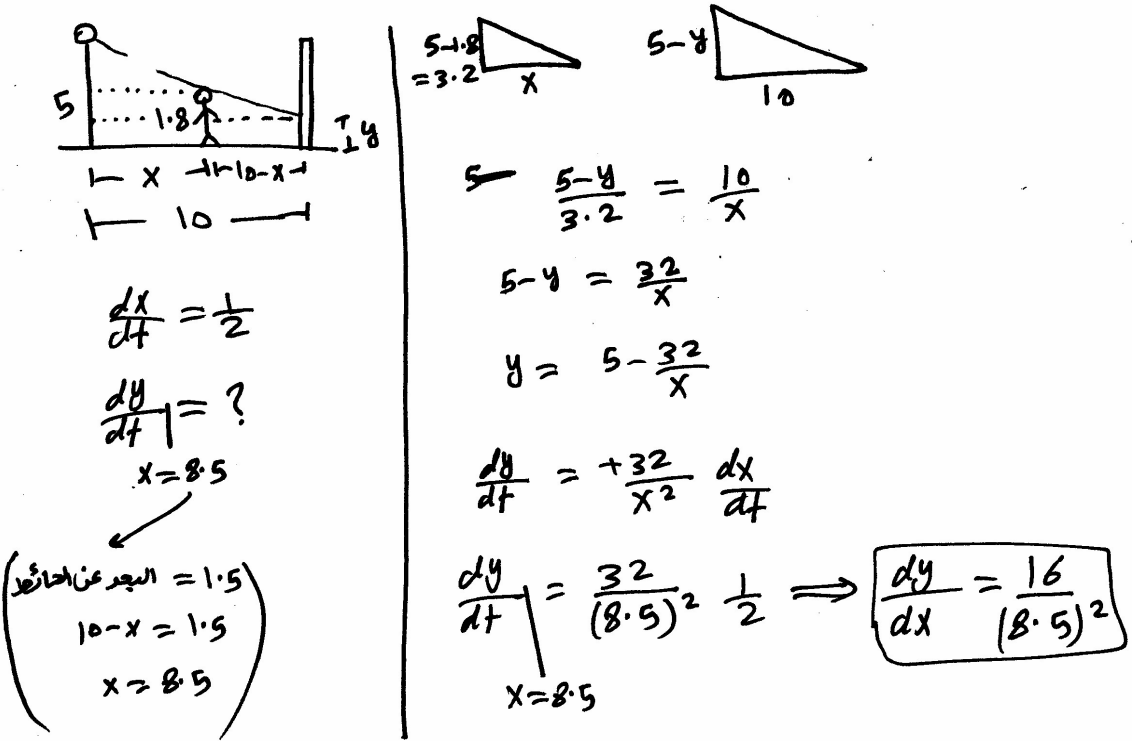 5
1.8
y
x
10-x
10
dx/dt = 1/2
dy/dt | = ?
x = 8.5
البعد عن الحائط = 1.5
10-x = 1.5
x = 8.5
5-1.8
= 3.2
x
5-y
10
5-y/3.2 = 10/x
5-y = 32/x
y = 5 - 32/x
dy/dt = +32/x² dx/dt
dy/dt | = 32/(8.5)² 1/2 ⟹ dy/dx = 16/(8.5)²
x = 8.5